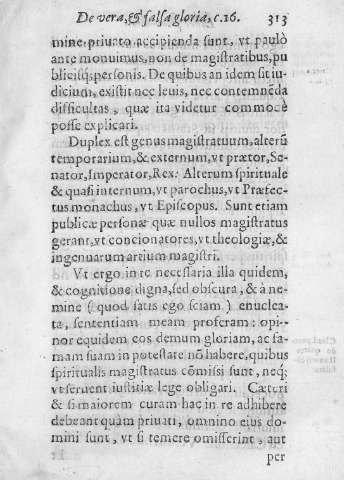 De vera, & falsa gloria, c. 16. 313
mine priuato accipienda sunt, vt paulò
ante monuimus, non de magistratibus, pu
blicisq; personis. De quibus an idem sit iu-
dicium, existit nec leuis, nec contemnẽda
difficultas, quæ ita videtur commodè
posse explicari.
Duplex est genus magistratuum, alterũ
temporarium, & externum, vt prætor, Se-
nator, Imperator, Rex: Alterum spirituale
& quasi internum, vt parochus, vt Præfec-
tus monachus, vt Episcopus. Sunt etiam
publicæ personæ quæ nullos magistratus
gerant, vt concionatores, vt theologiæ, &
ingenuarum artium magistri.
Vt ergo in re necessaria illa quidem,
& cognitione digna, sed obscura, & à ne-
mine (quod satis ego sciam) enuclea-
ta, sententiam meam proferam: opi-
nor equidem eos demum gloriam, ac fa-
mam suam in potestate nõ habere, quibus
spiritualis magistratus cõmissi sunt, neq;
vt seruent iustitiæ lege obligari. Cæteri
& si maiorem curam hac in re adhibere
debeant quàm priuati, omnino eius do-
mini sunt, vt si temere omisserint, aut
per